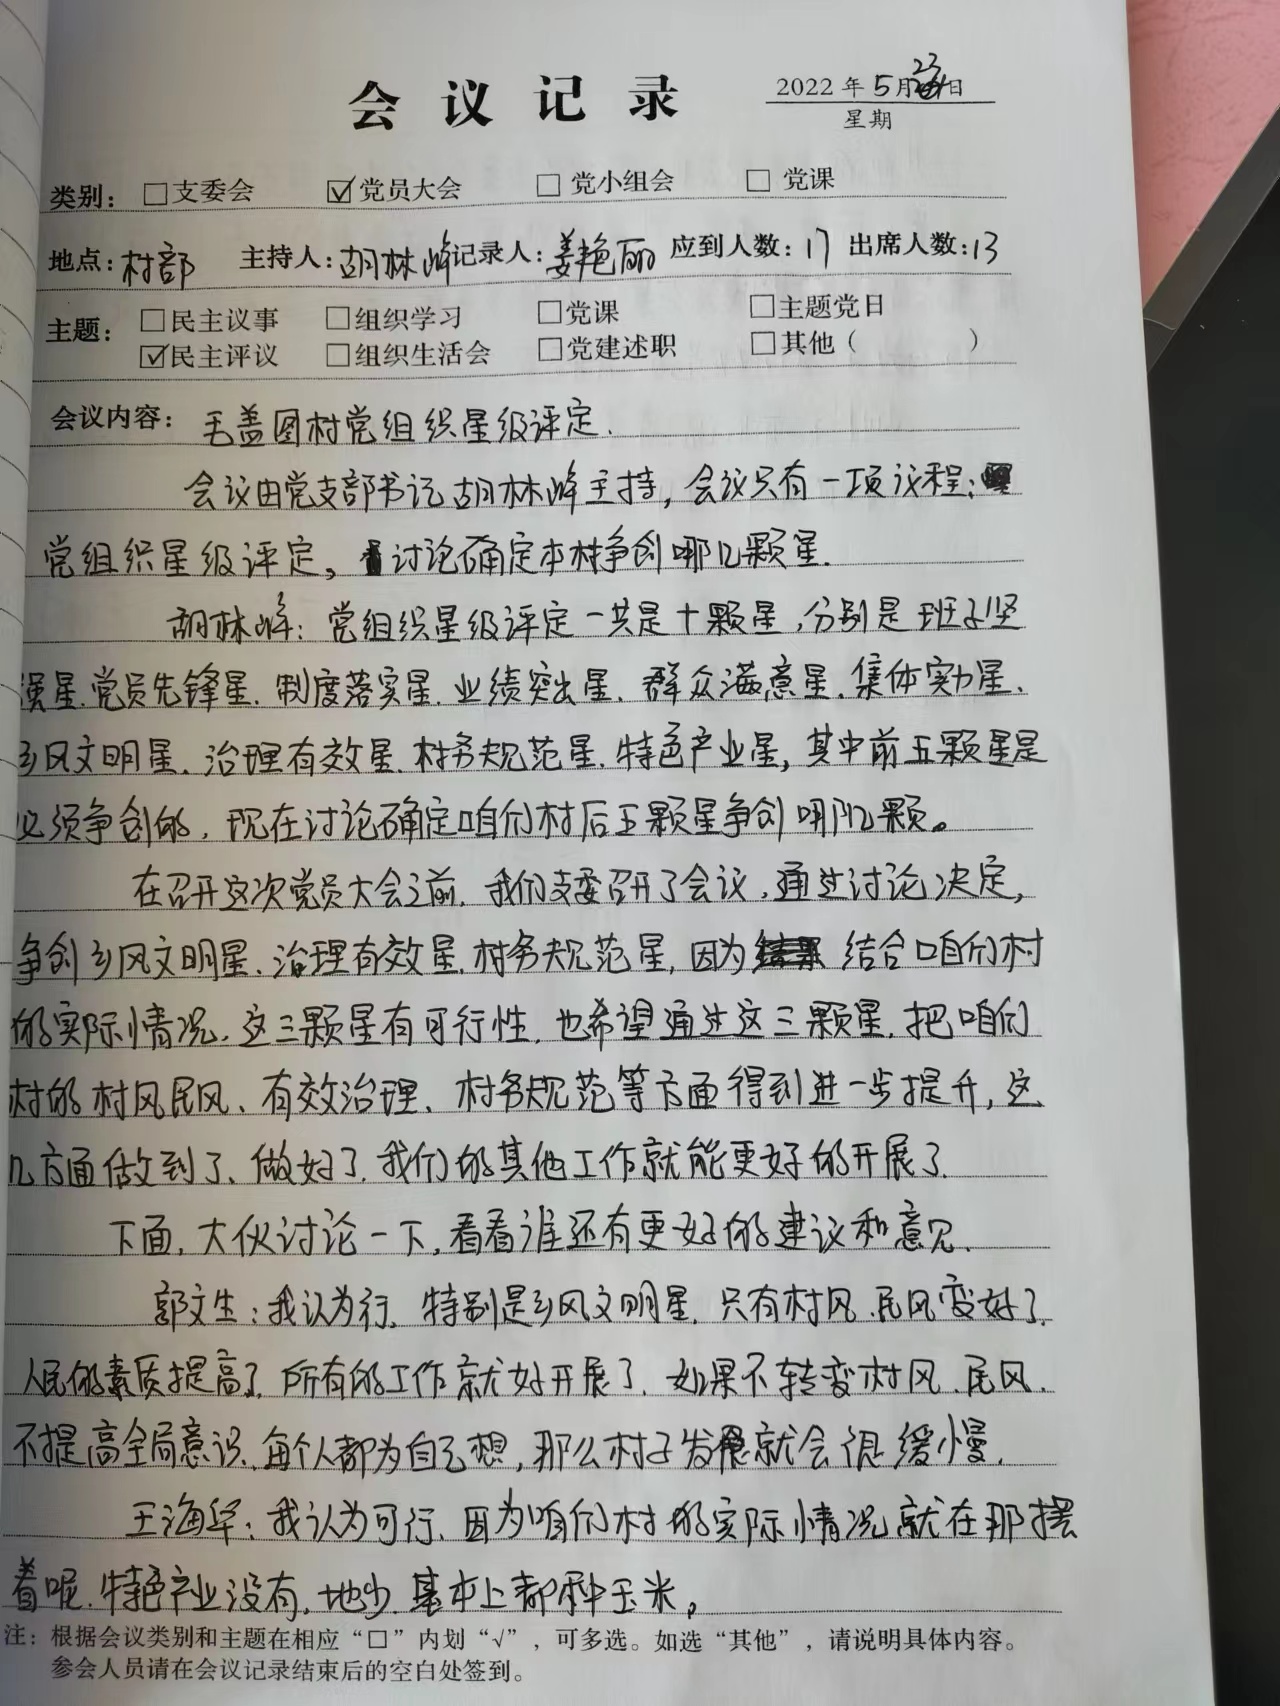 会议记录
2022年5月23日
星期
类别：□支委会 ☑党员大会 □党小组会 □党课
地点：村部 主持人：胡林峰 记录人：姜艳丽 应到人数：17 出席人数：13
主题：□民主议事 □组织学习 □党课 □主题党日
☑民主评议 □组织生活会 □党建述职 □其他（ ）
会议内容：毛盖图村党组织星级评定.
会议由党支部书记胡林峰主持，会议只有一项议程：
党组织星级评定，讨论确定本村争创哪几颗星.
胡林峰：党组织星级评定一共是十颗星，分别是班子坚
强星、党员先锋星、制度落实星、业绩突出星、群众满意星、集体实力星、
乡风文明星、治理有效星、村务规范星、特色产业星，其中前五颗星是
必须争创的，现在讨论确定咱们村后五颗星争创哪几颗。
在召开这次党员大会之前，我们支委召开了会议，通过讨论决定，
争创乡风文明星、治理有效星、村务规范星，因为结合咱们村
的实际情况，这三颗星有可行性，也希望通过这三颗星，把咱们
村的村风民风、有效治理、村务规范等方面得到进一步提升，这
几方面做到了、做好了，我们的其他工作就能更好的开展了.
下面，大伙讨论一下，看看谁还有更好的建议和意见.
郭文生：我认为行，特别是乡风文明星，只有村风、民风变好了，
人民的素质提高了，所有的工作就好开展了，如果不转变村风、民风，
不提高全局意识，每个人都为自己想，那么村子发展就会很缓慢.
王海军：我认为可行，因为咱们村的实际情况就在那摆
着呢，特色产业没有，地少，基本上都种玉米。
注：根据会议类别和主题在相应“□”内划“√”，可多选。如选“其他”，请说明具体内容。
参会人员请在会议记录结束后的空白处签到。